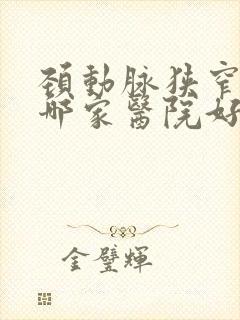 頸動脉狹窄
哪家醫院好
金璧輝